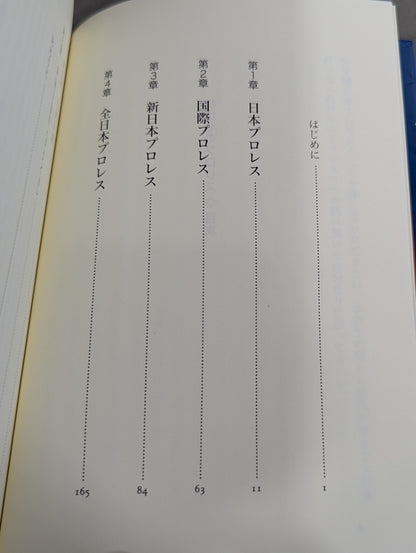 はじめに……………………………………1
第1章 日本プロレス……………………………………11
第2章 国際プロレス……………………………………63
第3章 新日本プロレス……………………………………84
第4章 全日本プロレス……………………………………165